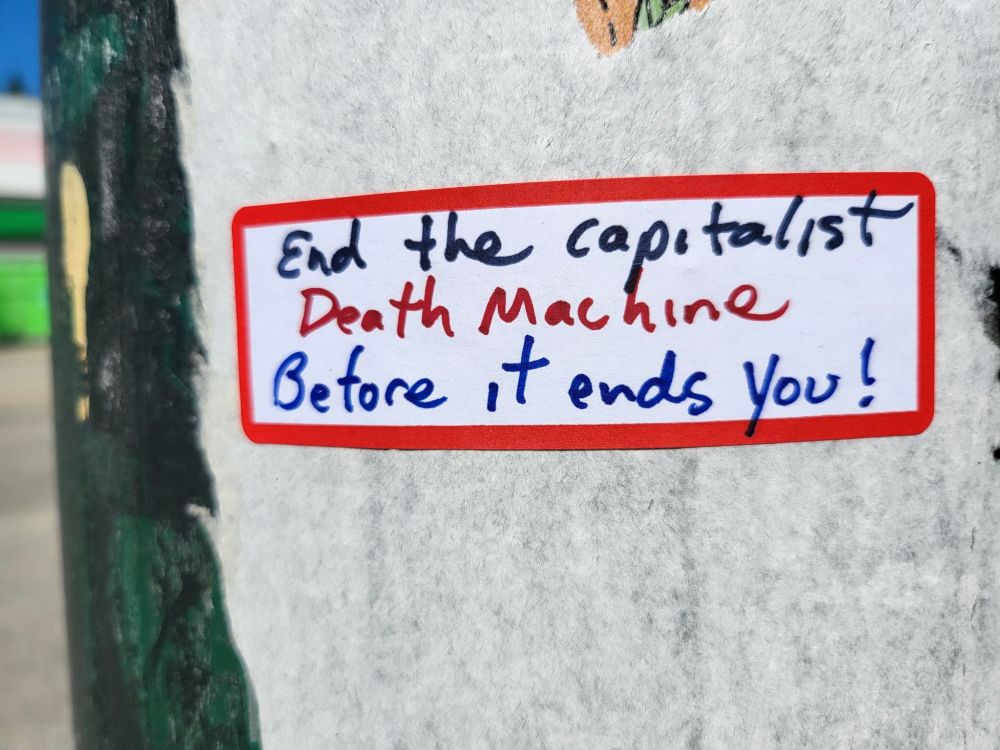 End the capitalist
Death Machine
Before it ends You!